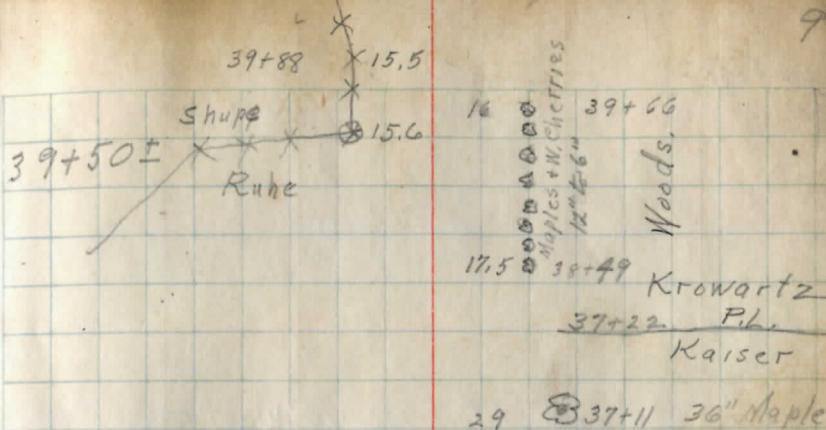 9
39+88 15.5
Shupe 15.6
39+50±
Ruhe
16 39+66
Maples + W. Cherries
12" to 6"
Woods.
17.5 38+49
Krowartz
37+22 P.L.
Kaiser
29 37+11 36" Maple